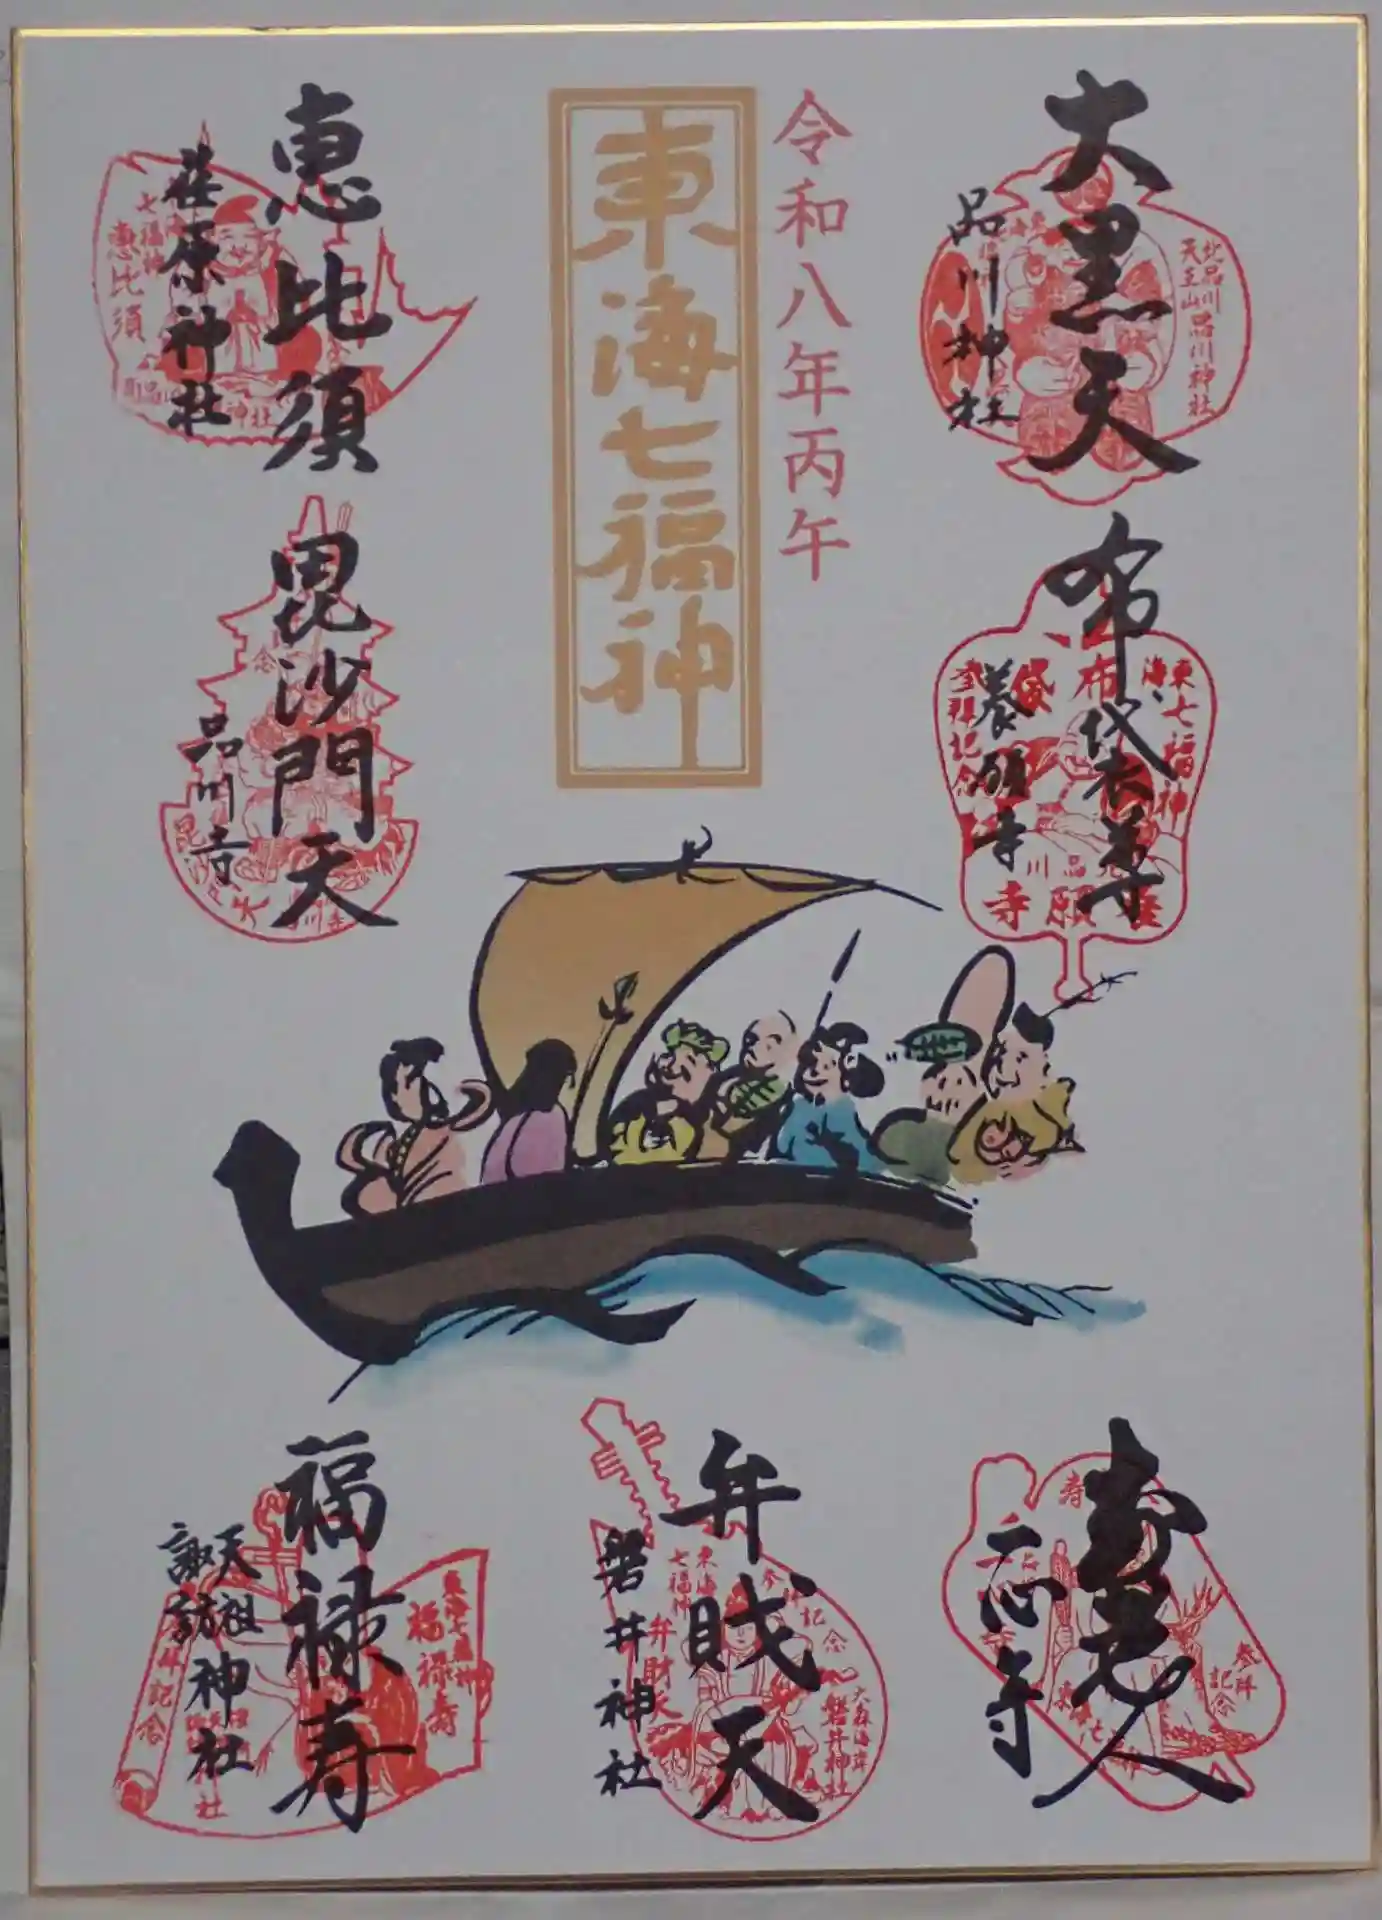 令和八年丙午
東海七福神
大黒天
品川神社
北品川
天王山品川神社
布袋尊
養願寺
東海七福神
布袋
参拝記念
恵比須
荏原神社
七福神
恵比須
毘沙門天
品川寺
寿老人
一心寺
寿
参拝
記念
弁財天
磐井神社
東海
七福神
弁財天
参拝記念
大森海岸
磐井神社
福禄寿
天祖
諏訪
神社
東海七福神
福禄寿
参拝記念